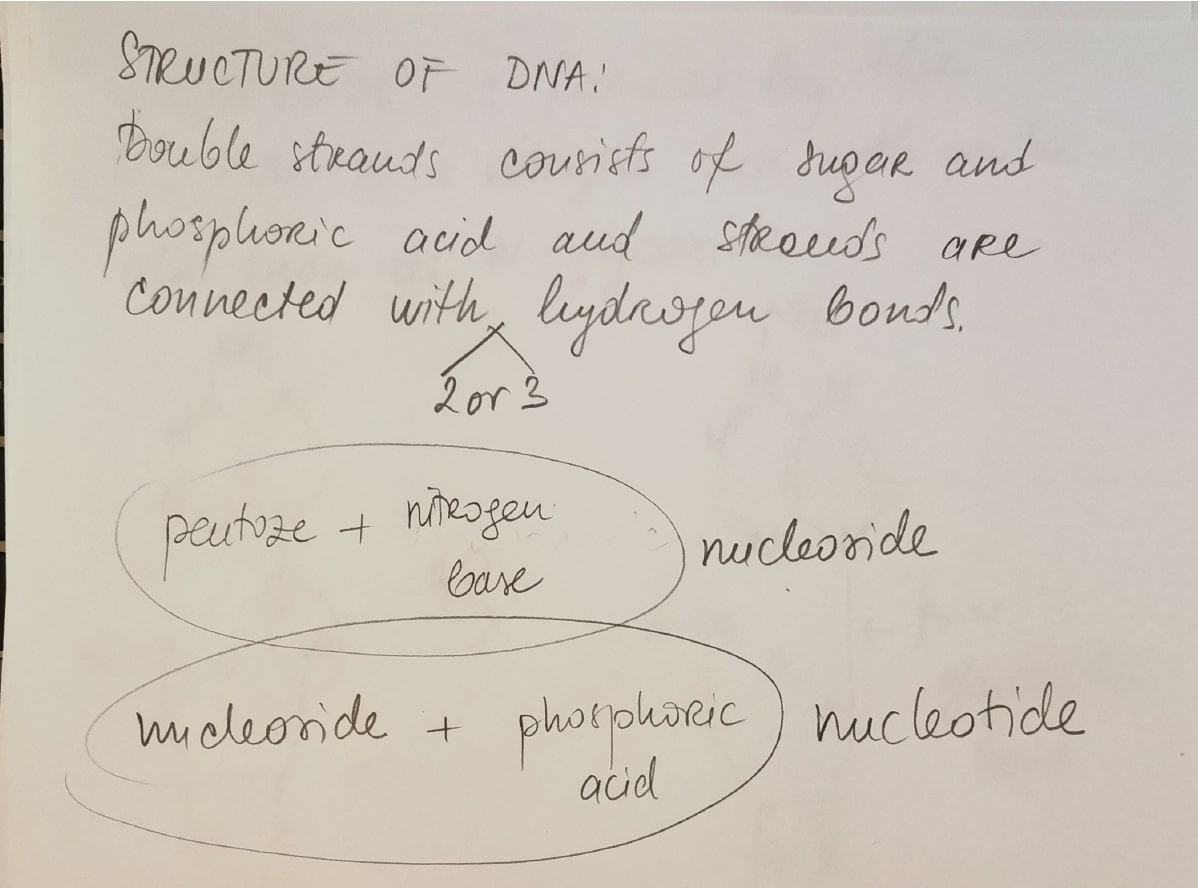 STRUCTURE OF DNA:
Double strands consists of sugar and
phosphoric acid and strands are
connected with hydrogen bonds.
2 or 3
pentoze + nitrogen
base
nucleoside
nucleoside + phosphoric
acid
nucleotide